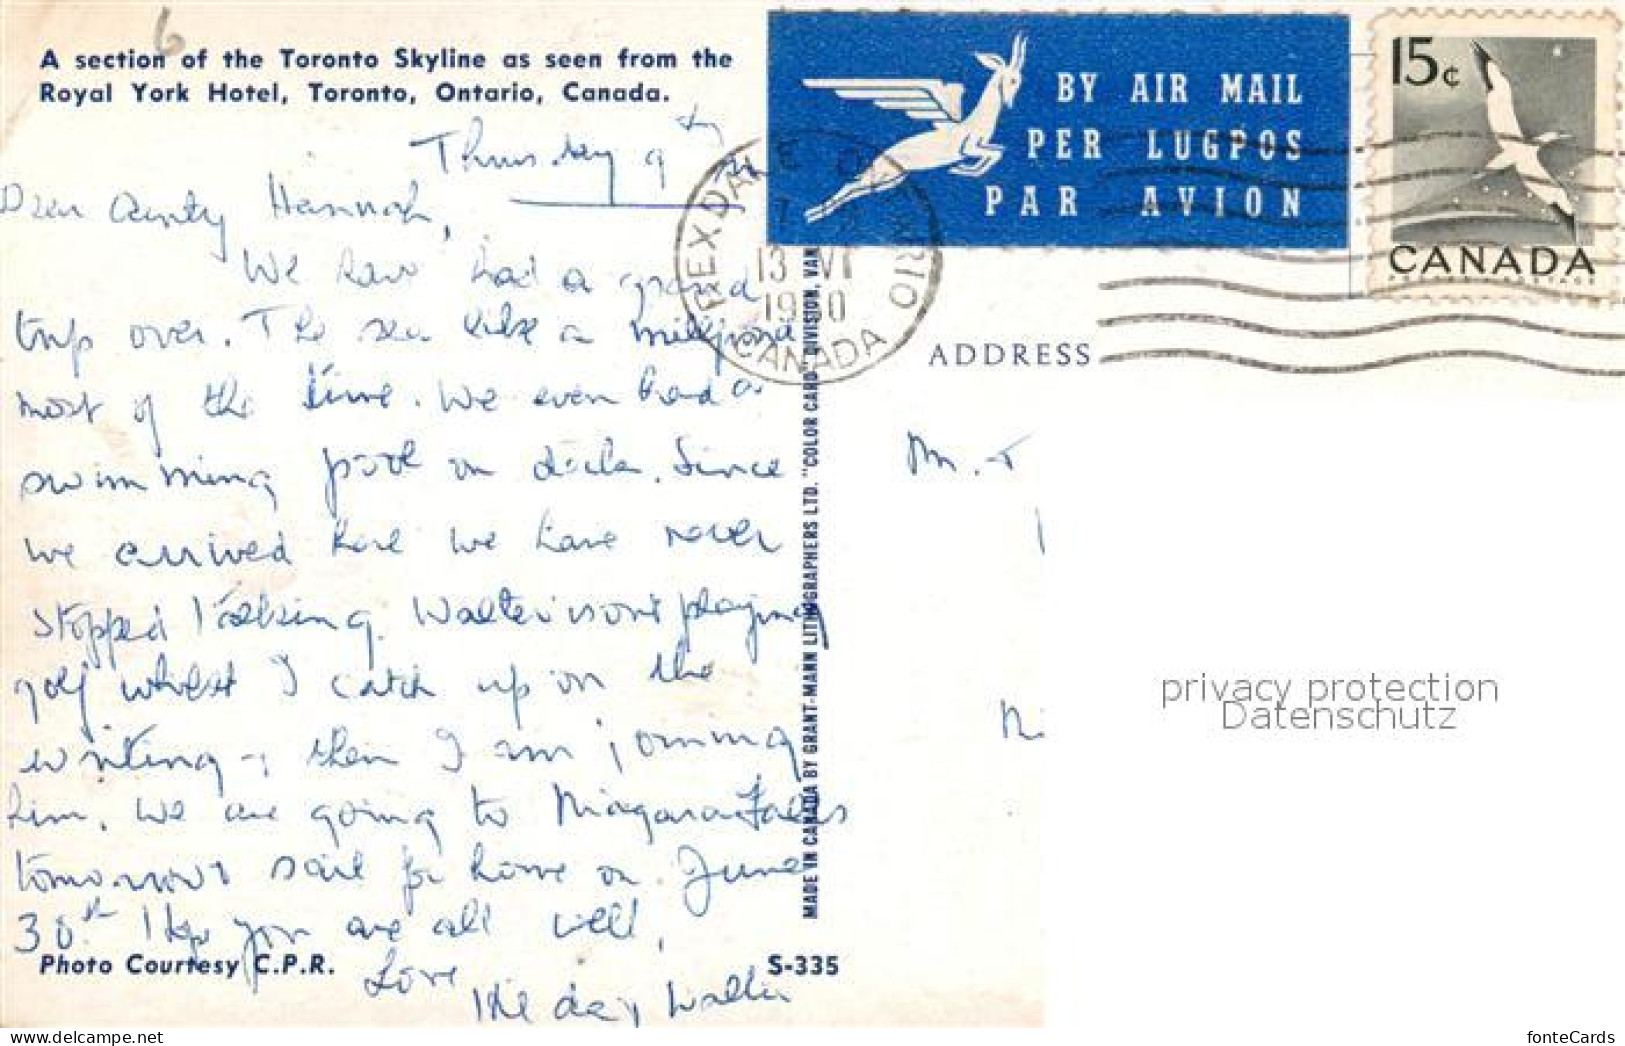 A section of the Toronto Skyline as seen from the
Royal York Hotel, Toronto, Ontario, Canada.
6
BY AIR MAIL
PER LUGPOS
PAR AVION
15c
CANADA
REXDALE ONTARIO
13 VI
CANADA
ADDRESS
Thursday 9th
Dear Aunty Hannah,
We have had a grand
trip over. The sea like a millpond
most of the time. We even had a
swimming pool on deck. Since
we arrived here we have never
stopped talking. Walter is out playing
golf whilst I catch up on the
writing - then I am joining
him. We are going to Niagara Falls
tomorrow sail for home on June
30th I hope you are all well,
Love
Walter
Photo Courtesy C.P.R.
S-335
MADE IN CANADA BY GRANT-MANN LITHOGRAPHERS LTD. "COLOR CARD" DIVISION, VAN
privacy protection
Datenschutz
fonteCards